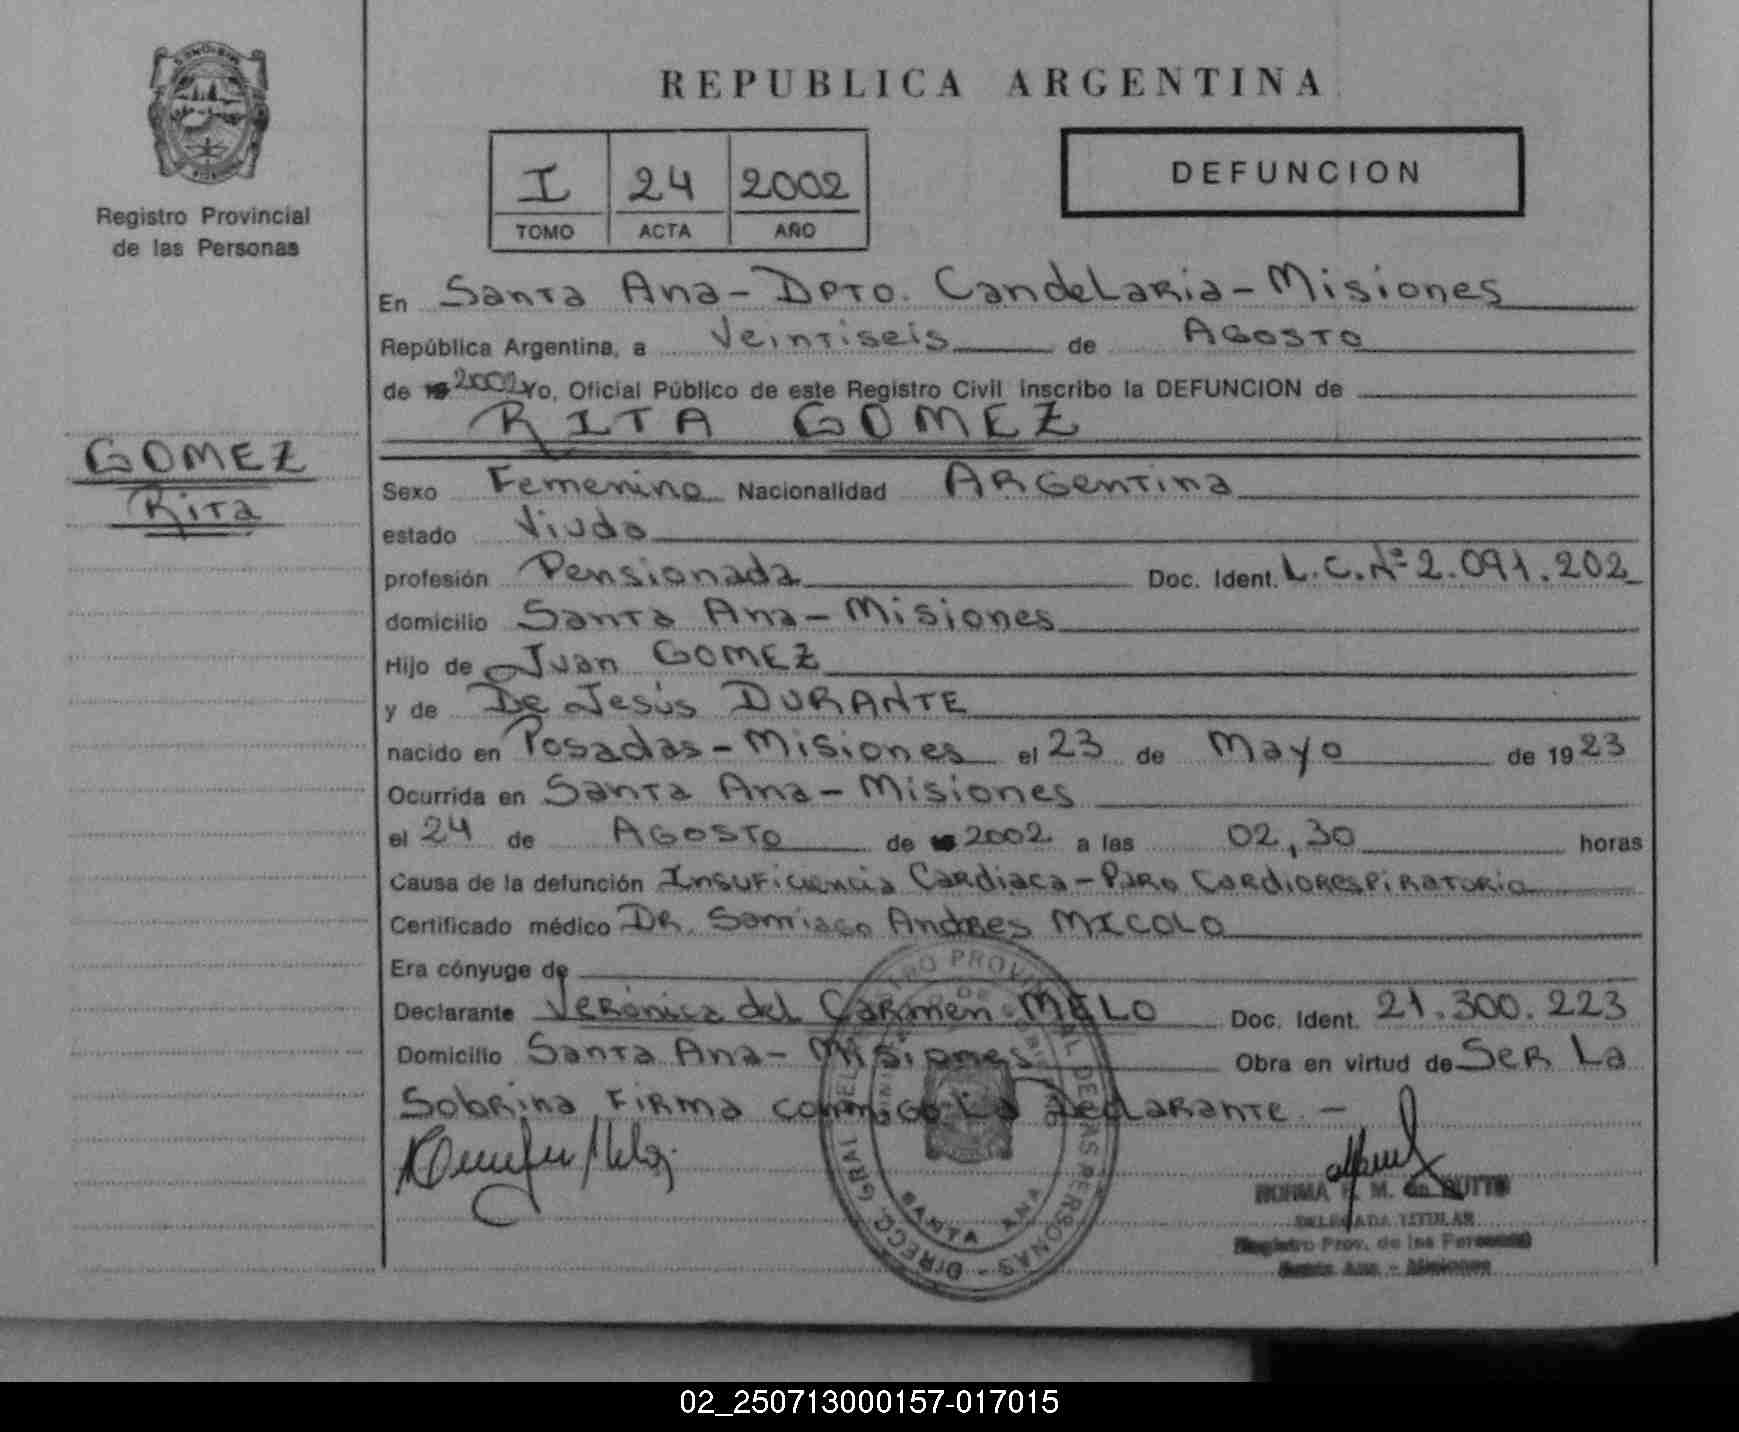 REPUBLICA ARGENTINA
Registro Provincial
de las Personas
I 24 2002
TOMO ACTA AÑO
DEFUNCION
En Santa Ana - Dpto. Candelaria - Misiones
República Argentina, a Veintiseis de Agosto
de 2002 Yo, Oficial Público de este Registro Civil inscribo la DEFUNCION de
RITA GOMEZ
GOMEZ
Rita
Sexo Femenino Nacionalidad Argentina
estado Viuda
profesión Pensionada Doc. Ident. L.C.Nº 2.091.202
domicilio Santa Ana - Misiones
Hijo de Juan GOMEZ
y de De Jesús DURANTE
nacido en Posadas - Misiones el 23 de Mayo de 1923
Ocurrida en Santa Ana - Misiones
el 24 de Agosto de 2002 a las 02,30 horas
Causa de la defunción Insuficiencia Cardiaca - Paro Cardiorespiratorio
Certificado médico DR. Santiago Andres MICOLO
Era cónyuge de
Declarante Verónica del Carmen MELO Doc. Ident. 21.300.223
Domicilio Santa Ana - Misiones Obra en virtud de Ser La
Sobrina, Firma conmigo La Declarante. -
DIRECC. GRAL DEL REGISTRO PROVINCIAL DE LAS PERSONAS
SANTA ANA
NORMA M. de
DELEGADA TITULAR
Registro Prov. de las Personas
Santa Ana - Misiones
02_250713000157-017015